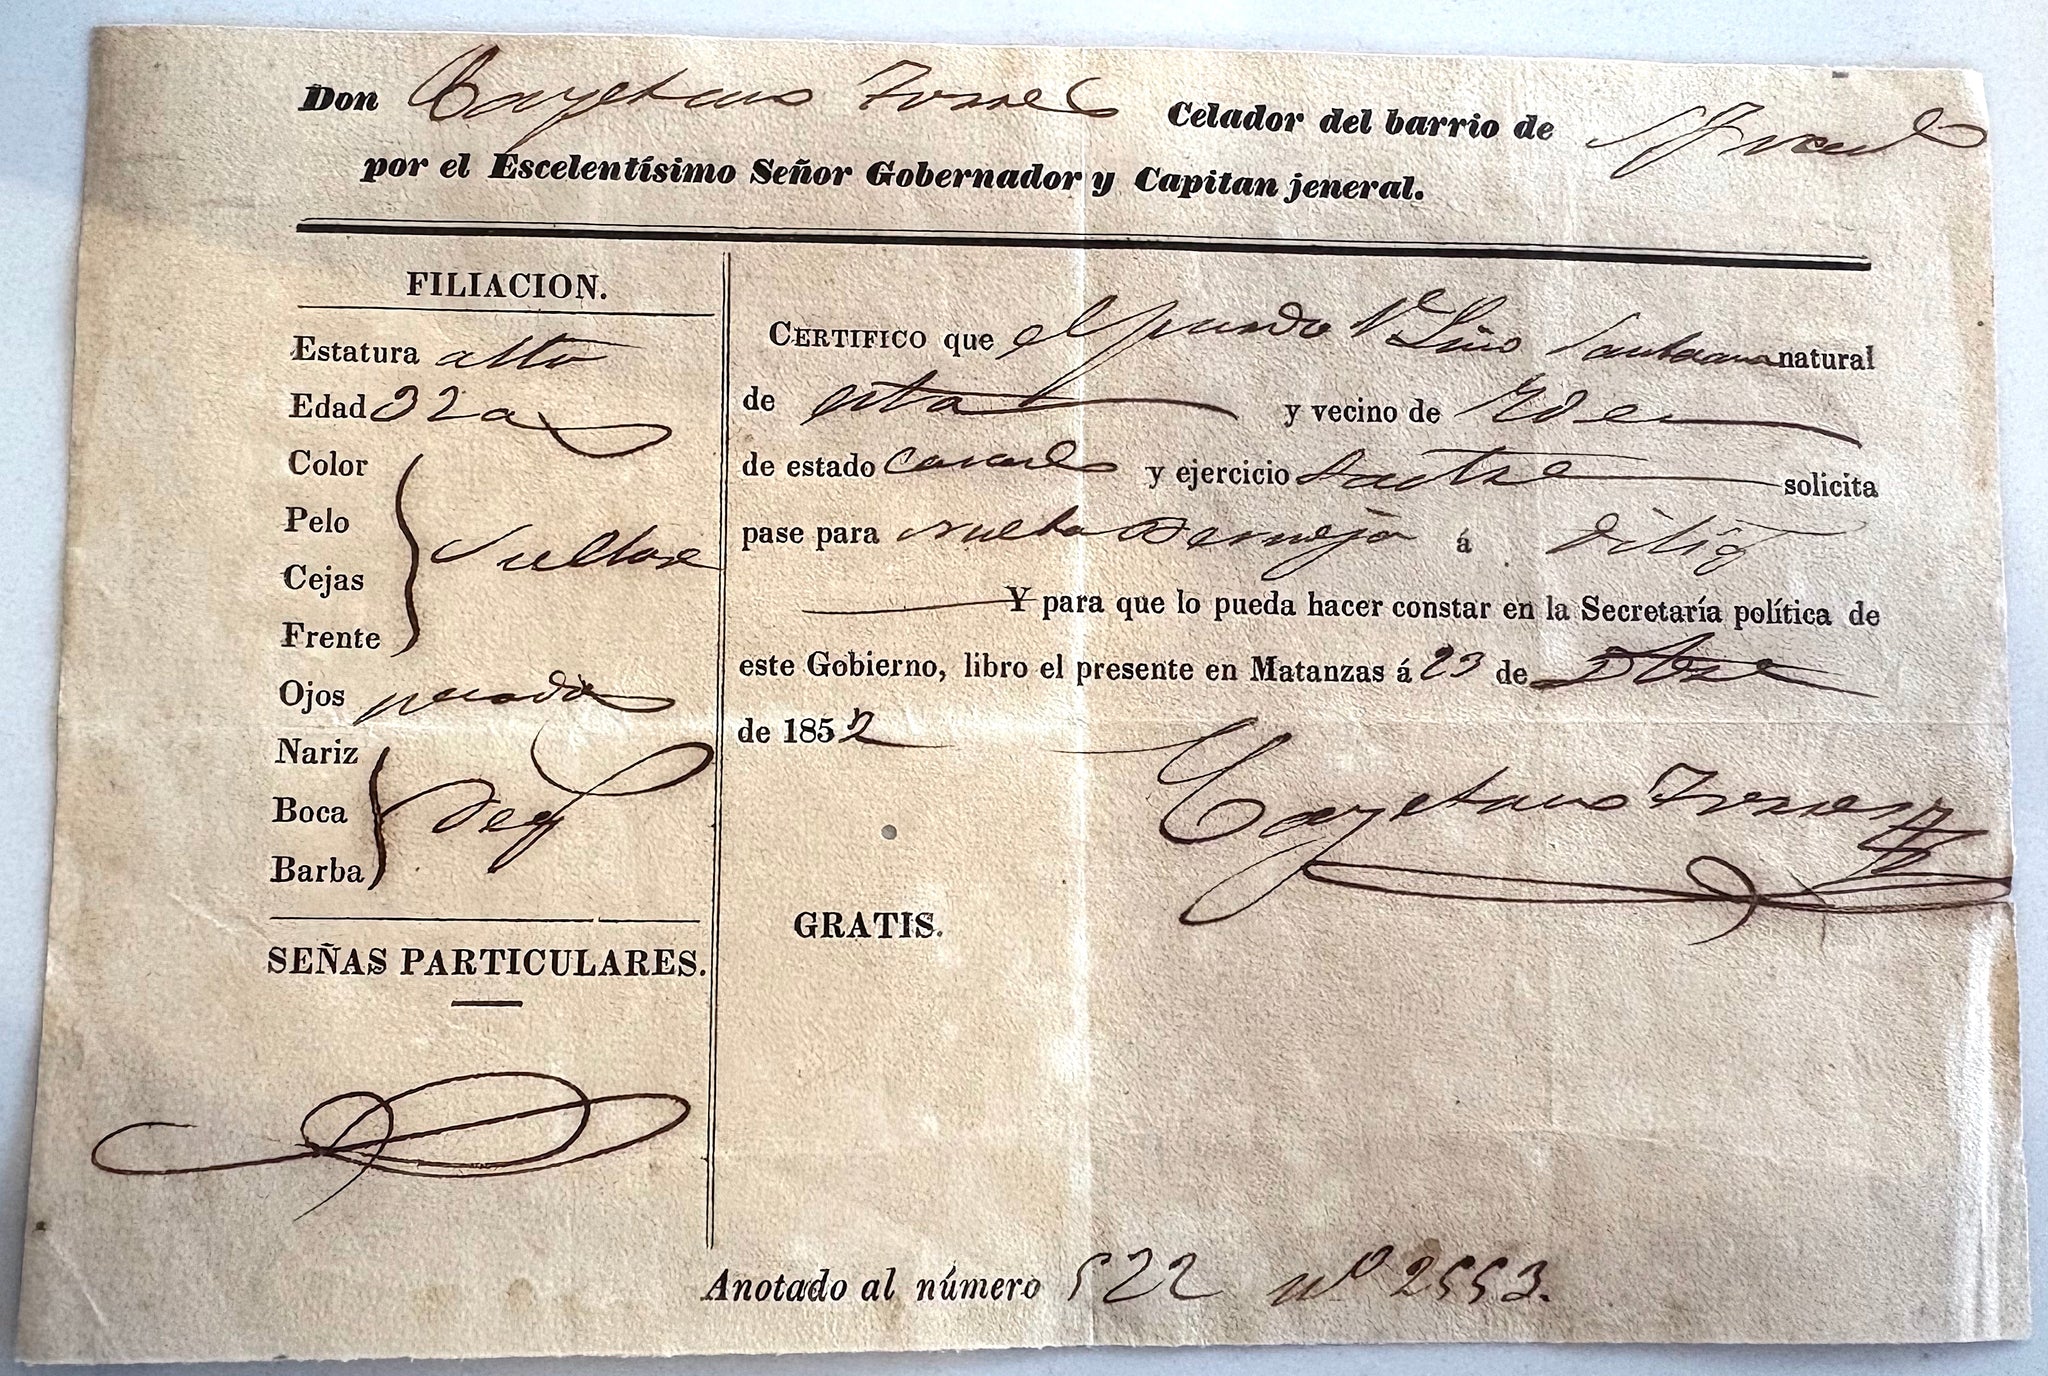 Don Cayetano Torres Celador del barrio de
por el Escelentísimo Señor Gobernador y Capitan jeneral.
FILIACION.
Estatura alto
Edad 32 a
Color
Pelo
Cejas
Frente
Ojos pardos
Nariz
Boca
Barba
Reg
SEÑAS PARTICULARES.
CERTIFICO que el pardo Lino Santana natural
de esta y vecino de Yden
de estado casado y ejercicio sastre solicita
pase para nueba Bermeja á dilig
Y para que lo pueda hacer constar en la Secretaría política de
este Gobierno, libro el presente en Matanzas á 23 de
de 1852
Cayetano Torres
GRATIS.
Anotado al número 522 Nº 2553.